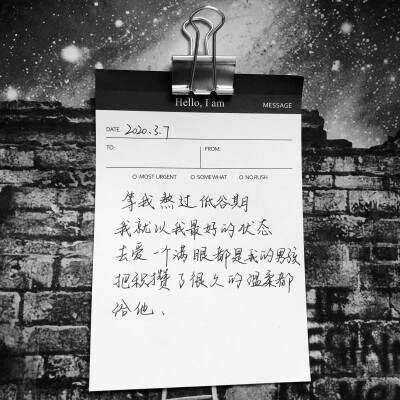 Hello, I am
MESSAGE
DATE 2020.3.7
TO: FROM:
MOST URGENT SOMEWHAT NO RUSH
等我熬过低谷期
我就以我最好的状态
去爱一个满眼都是我的男孩
把积攒了很久的温柔都
给他、